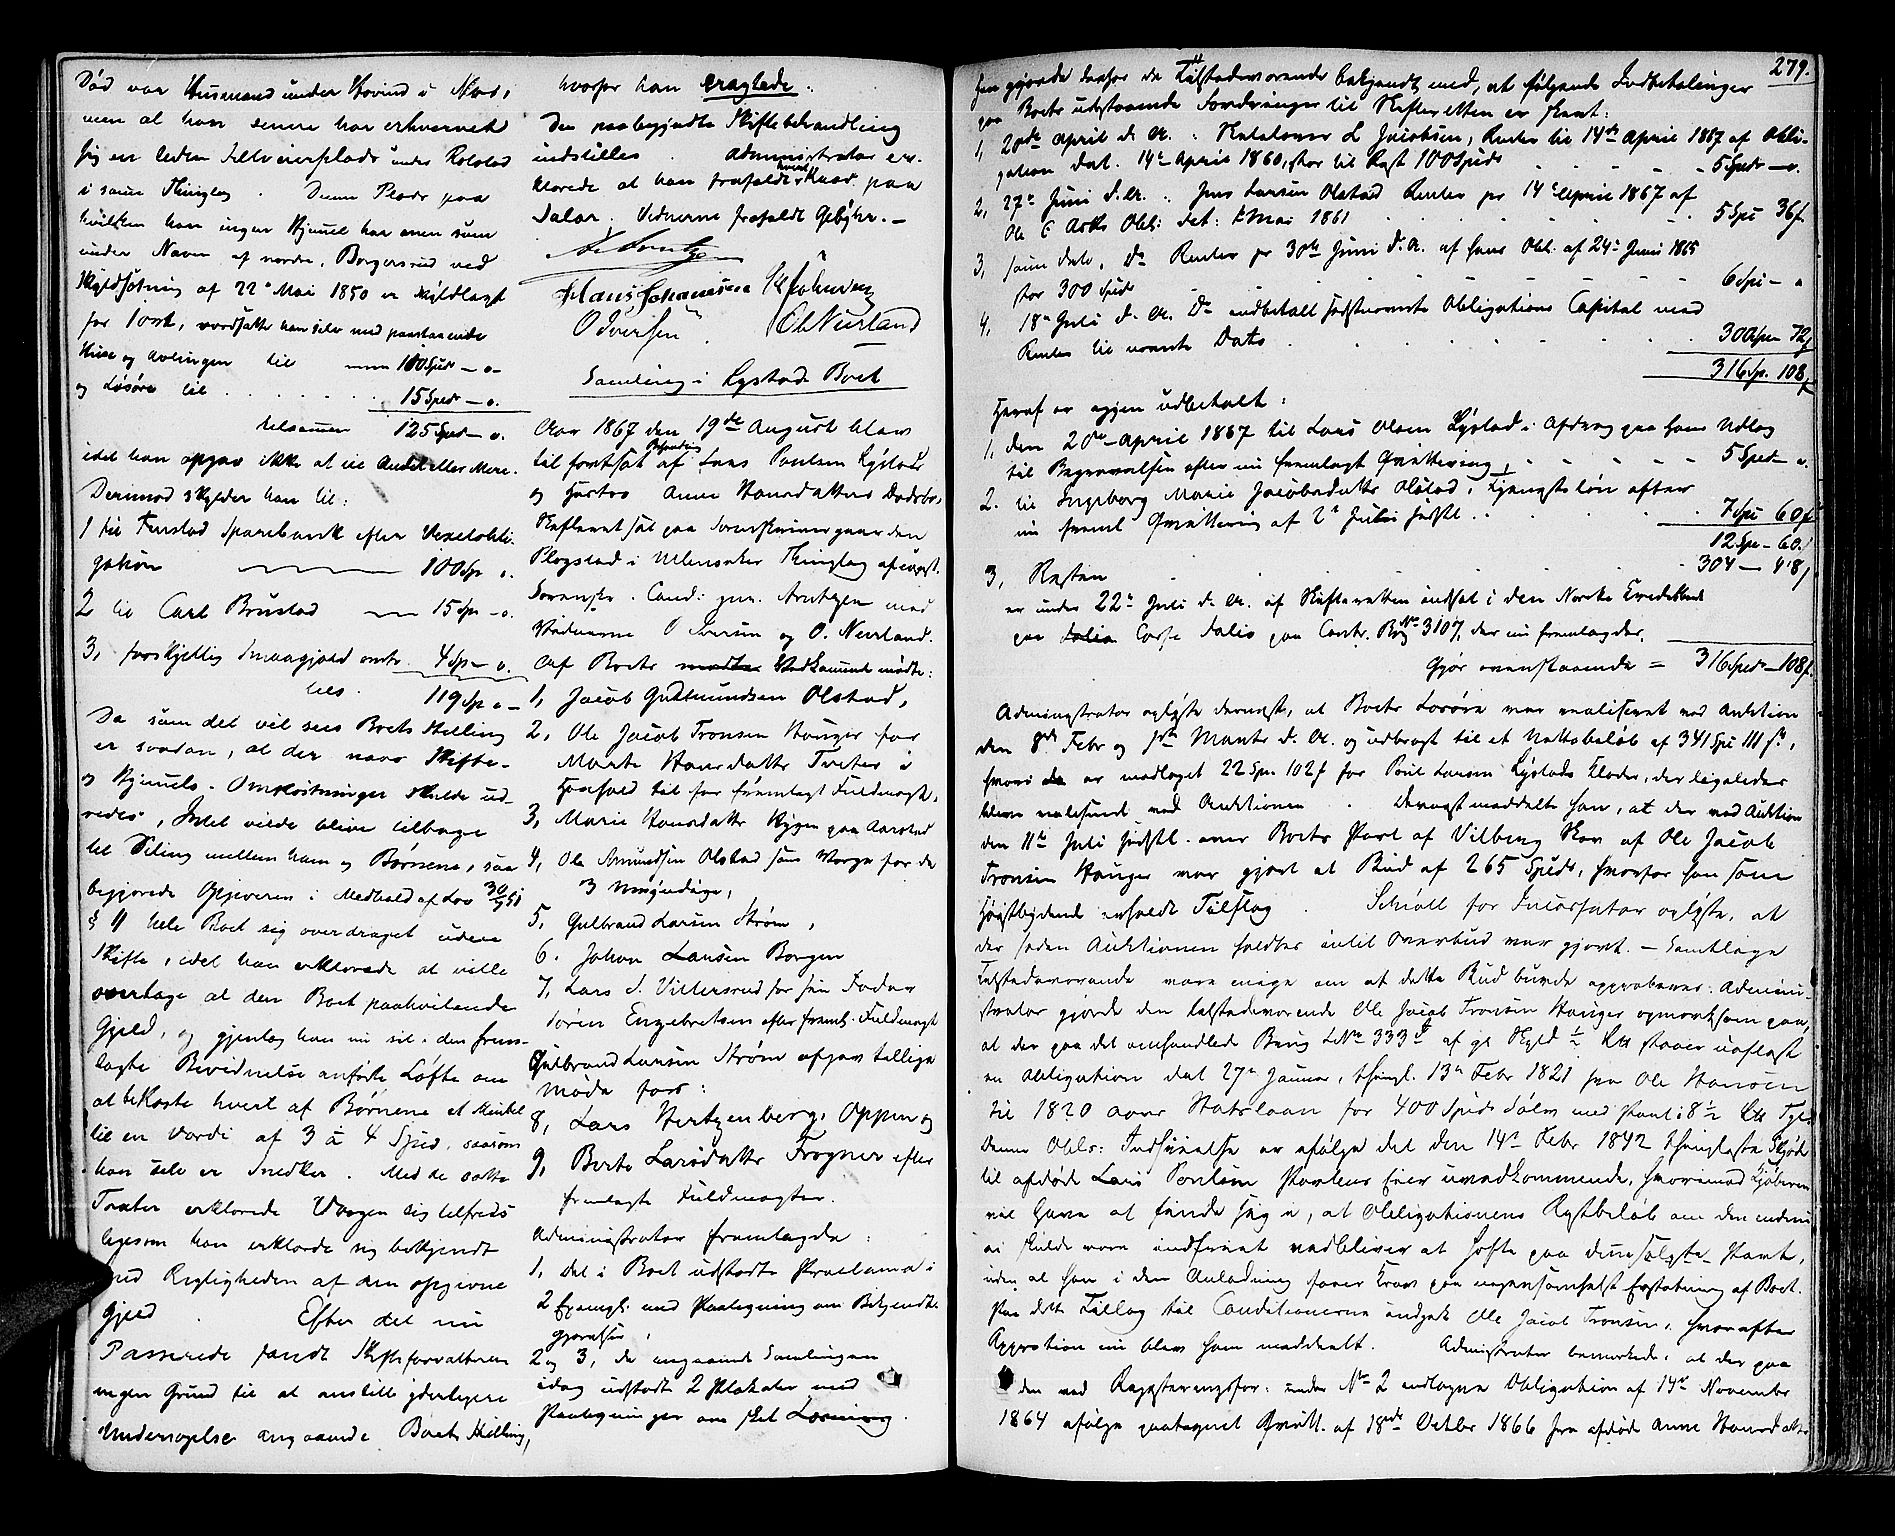 Død var Husmand under Hovind i Næs,
men at han senere har erhvervet
sig en liden Selveierplads under Rolstad
i samme Thinglag. Denne Plads paa
hvilken han ingen Hjemmel har men som
under Navn af nordre Borgersrud ved
Skyldsætning af 22de Mai 1850 er skyldlagt
for 1 ort, værdsatte han selv med paastaaende
Huse og Avlingen til 110 Spd - o -
og Løsøre til 15 Spd - o.
tilsammen 125 Spd - o.
idet han opgav ikke at eie Andet eller Mere.
Derimod skylder han til:
1 til Sparebank efter Vexelobli-
gation 100 Sp o.
2 til Carl Brustad 15 Sp - o.
3, forskjellig Smaagjæld omtr. 4 Sp - o.
tils. 119 Sp o -
Da som det vil sees Boets Stilling
er saadan, at der naar Skifte-
og Hjemmels-Omkostninger skulde ud-
redes, Intet vilde blive tilbage
til Deling mellem ham og Børnene, saa
begjærede Opgiveren i Medhold af Lov 30/7 51
§ 11 hele Boet sig overdraget uden
Skifte, idet han erklærede at ville
overtage al den Boet paahvilende
Gjæld, og gjentog han nu sit i den frem-
lagte Bevidnelse anførte Løfte om
at bekoste hvert af Børnene et Møbel
til en Værdi af 3 à 4 Spd, saasom
han selv er Snedker. Med de satte
Taxter erklærede Værgen sig tilfreds
ligesom han erklærede sig bekjendt
med Rigtigheden af den opgivne
Gjæld. Efter det nu
Passerede fandt Skifteforvalteren
ingen Grund til at anstille yderligere
Undersøgelse angaaende Boets Stilling,
hvorfor han eragtede:
Den paabegyndte Skiftebehandling
indstilles. Administrator er-
klærede at han frafaldt Krav paa
Salær. Vidnerne frafaldt Gebyhr. -
Hans Johannesen
O Iversen O Nerland
Samling i Kystads Boet
Aar 1867 den 19de August blev
til fortsat Behandling af Lars Poulsen Kystads
og Hustro Anne Hansdatters Dødsbo,
Skifteret sat paa Sorenskrivergaarden
Plogstad i Ullensaker Thinglag af const.
Sorenskr. Cand: jur. Arntzen med
Vidnerne O Iversen og O. Nerland.
Af Boets Vedkommende mødte:
1, Jacob Gudmundsen Olstad,
2, Ole Jacob Tronsen Hauger for
Marte Hansdatter Tveter i
Henhold til før fremlagt Fuldmagt,
3, Marie Hansdatter Nygen paa Aarstad
4, Ole Amundsen Olstad som Værge for de
3 Umyndige,
5, Gulbrand Larsen Strøm,
6. Johan Larsen Borgen
7, Lars S. Villersrud for sin Fader
Søren Engebretsen efter freml. Fuldmagt
Gulbrand Larsen Strøm opgav tillige
møde for:
8, Lars Hertzenberg Oppen og
9, Berte Larsdatter Frogner efter
fremlagte Fuldmagter.
Administrator fremlagde:
1, det i Boet udstædte Proclama i
2 Exempl. med Paategning om Bekjendt-
gjørelse,
2 og 3, de angaaende Samlingen
idag udstædte 2 Plakater med
Paategninger om sket Læsning.
279.
Han gjorde derfor de Tilstedeværende bekjendt med, at følgende Indbetalinger
paa Boets udestaaende Fordringer til Skifteretten er skeet:
1, 20de April d. A.: L Jacobsen, Renter til 14de April 1867 af Obli-
gation dat. 14de April 1860, stor til Rest 100 Spd 5 Spd - o.
2, 27de Juni d. A.: Jens Larsen Olstad Renter pr 14de April 1867 af
Ole E Obl: dat: Mai 1861 5 Spd 36 s.
3, samme Dato, Do Renter pr 30te Juni d. A. af hans Obl. af 24de Juni 1865
stor 300 Spd 6 Spd - o
4, 18de Juli d. A. Do indbetalt sidstnævnte Obligations Capital med
Renter til nævnte Dato 300 Spd 72 s
316 Sp. 108 s
Heraf er igjen udbetalt:
1, den 20de April 1867 til Lars Olsen Kystad i Afdrag paa hans Udlæg
til Begravelsen efter nu fremlagt Qvittering 5 Spd - o.
2. til Ingeborg Marie Jacobsdatter Olstad, Tjenestløn efter
nu freml. Qvittering af 2de Juli sidstl. 7 Spd 60 s
12 Spd - 60 s
3, Resten 304 - 48 s
er under 22de Juli d. A. af Skifteretten indsat i den Norske Creditbank
paa Folio paa Contr. Bog No 3107, der nu fremlagdes,
Gjør ovenstaaende = 316 Spd - 108 s.
Administrator oplyste dernæst, at Boets Løsøre var realiseret ved Auktion
den 8de Febr og 1ste Marts d. A. og udbragt til et Nettobeløb af 341 Spd 111 s,
hvori er medtaget 22 Spd 102 s for Poul Larsen Kystads Klæder, der ligeledes
bleve realiseret ved Auktionen. Dernæst meddelte han, at der ved Auktion
den 11te Juli sidstl. over Boets Part af Vilberg Skov af Ole Jacob
Tronsen Hauger var gjort et Bud af 265 Spd, hvorfor han som
Høistbydende erholdt Tilslag. Schiøll for Incassator oplyste, at
der siden Auktionen holdtes intet Overbud var gjort. - Samtlige
Tilstedeværende vare enige om at dette Bud burde approberes. Admini-
strator gjorde den tilstedeværende Ole Jacob Tronsen Hauger opmærksom paa,
at der paa det omhandlede Brug LNo 333 af gl Skyld staaer uaflæst
en Obligation dat 27de Januar, thingl. 13de Febr 1821 fra Ole Hansen
til 1820 Aars Statslaan for 400 Spd Sølv med Pant i 8½
denne Obls: Indfrielse er ifølge det den 14de Febr 1842 thinglæste Skjøde
til afdøde Lars Poulsen Partens Eier uvedkommende, hvorimod Kjøberen
vil have at finde sig i, at Obligationens Restbeløb om den endnu
ei skulde være indfriet vedbliver at hefte paa
uden at han i den Anledning faaer Krav paa nogensomhelst Erstatning af Boet.
Paa dette Tillæg til Conditionerne indgik Ole Jacob Tronsen, hvorefter
Approbation nu blev ham meddeelt. Administrator bemærkede, at der paa
den ved Registreringsfor: under No 2 Obligation af 14de November
1864 ifølge paategnet Qvitt. af 18de Octbr 1866 fra afdøde Anne Hansdatter